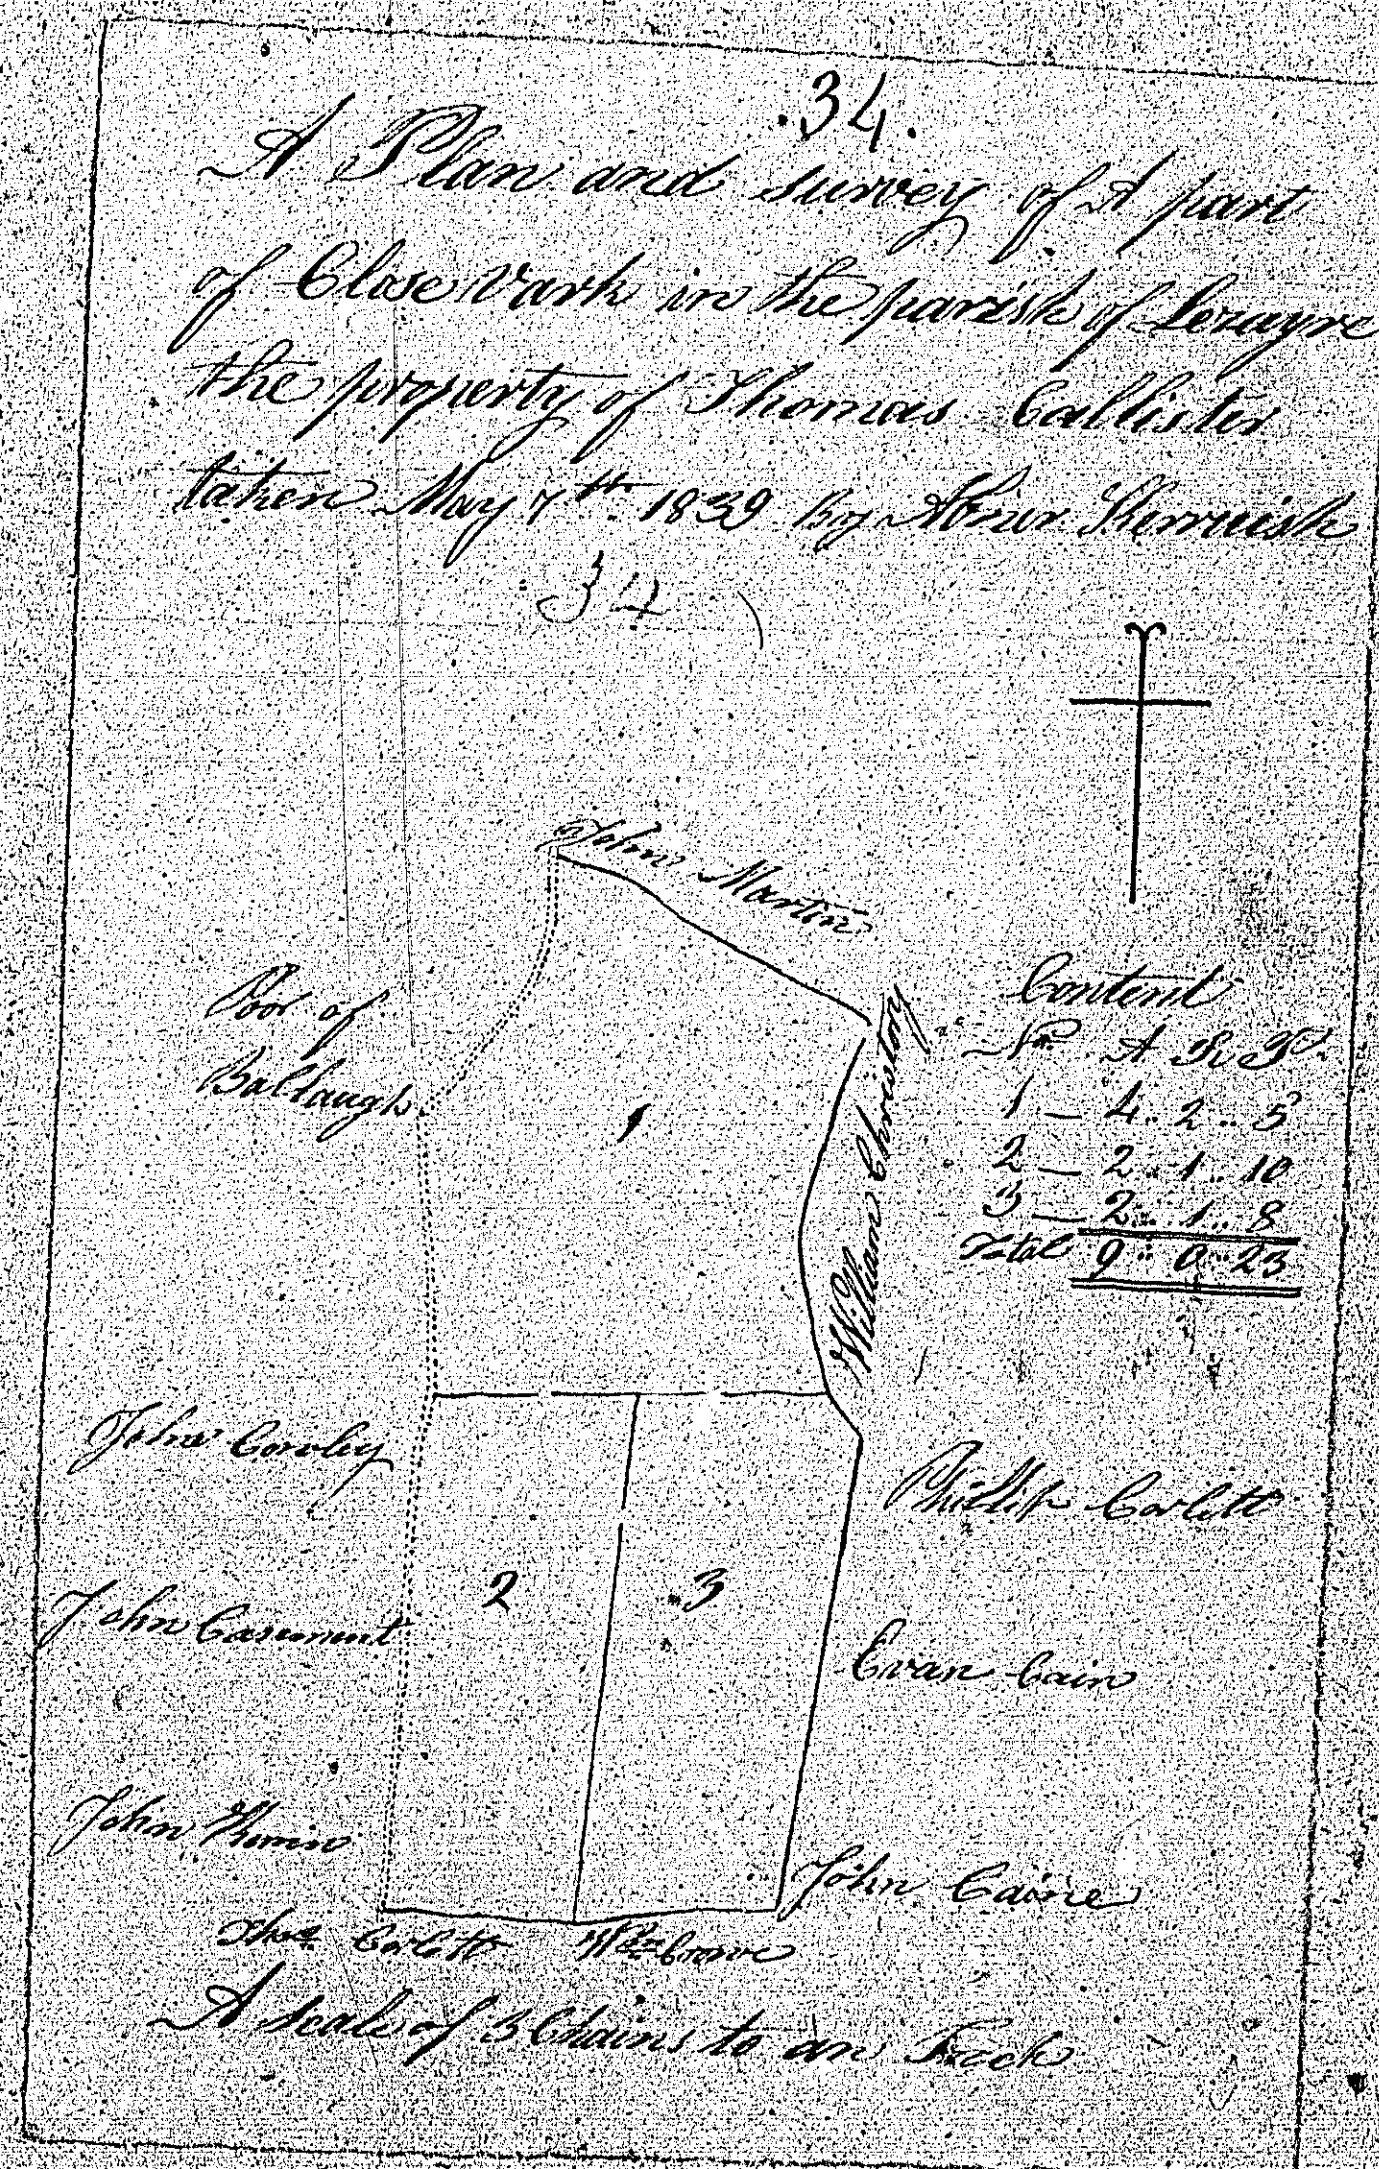 .34.
A Plan and survey of A part
of Close Vark in the parish of Lezayre
the property of Thomas Callister
taken May 7th 1839 by Abner Kerruish
34
John Martin
Poor of
Ballaugh
William Christory
1
Content
No. A R P.
1 — 4 .. 2 .. 5
2 — 2 .. 1 .. 10
3 — 2 .. 1 .. 8
Total 9 .. 0 .. 23
John Cowley
Phillip Corlett
2
3
John Casement
Evan Cain
John
John Caine
Thos Corlett Wm Crowe
A scale of 3 Chains to an Inch